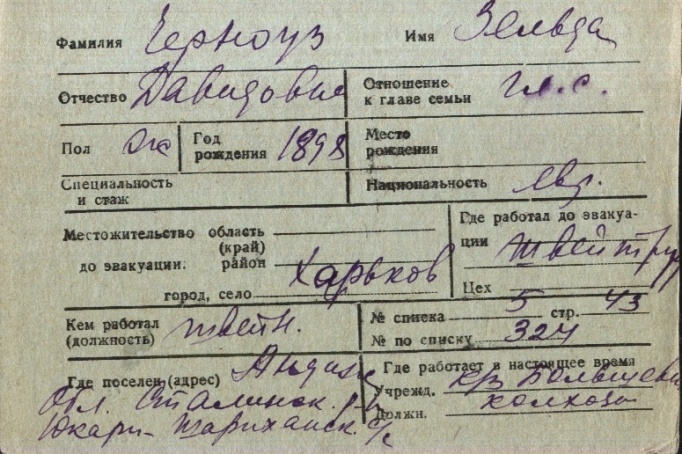 Фамилия Черноуз Имя Зельда
Отчество Давидовна Отношение к главе семьи гл.с.
Пол ж Год рождения 1898 Место рождения
Специальность и стаж Национальность евр.
Местожительство область (край) до эвакуации: район
город, село Харьков
Где работал до эвакуации швейтруд
Цех
Кем работал (должность) швейн.
№ списка 5 стр. 43
№ по списку 324
Где поселен (адрес) Андиж
Обл. Сталинск. р-н
Юкари-Шариханск. с/с
Где работает в настоящее время
Учрежд. к/з Большевик
Должн. колхозн